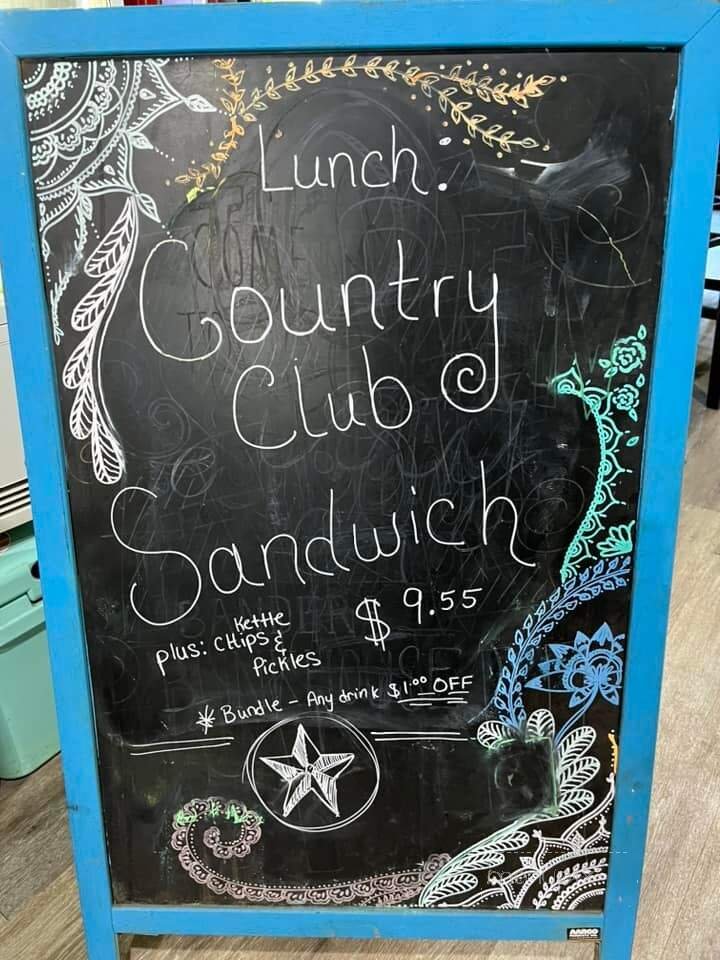 Lunch:
Country
Club
Sandwich
$9.55
plus: Kettle
Chips &
Pickles
* Bundle - Any drink $1.00 OFF
AARCO